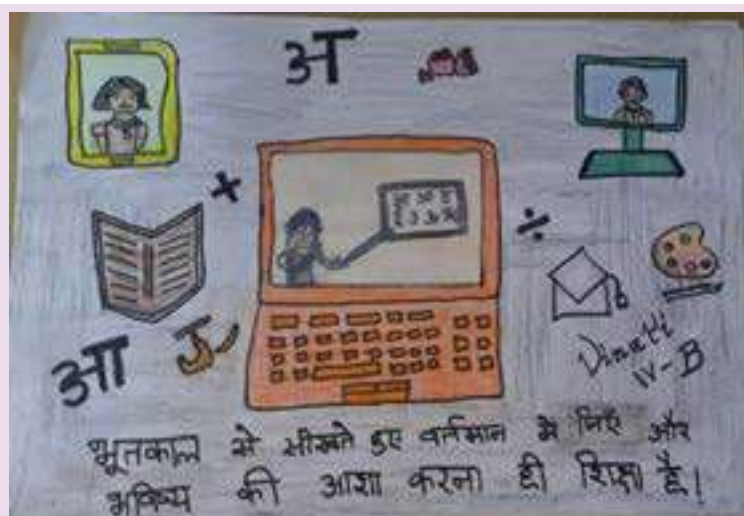 अ
+
÷
आ
उ
Dinati
IV-B
भूतकाल से सीखते हुए वर्तमान में जिएँ और
भविष्य की आशा करना ही शिक्षा है।